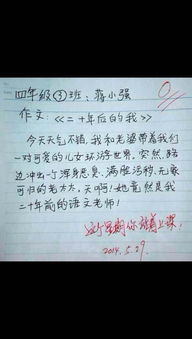 四年级③班:蒋小强
作文:《二十年后的我》
今天天气不错,我和老婆带着我们
一对可爱的儿女环游世界,突然,路
边冲出一个浑身恶臭、满脸污秽、无家
可归的老太太,天啊!她竟然是我
二十年前的语文老师!
这个星期你站着上课!
2014.5.29.